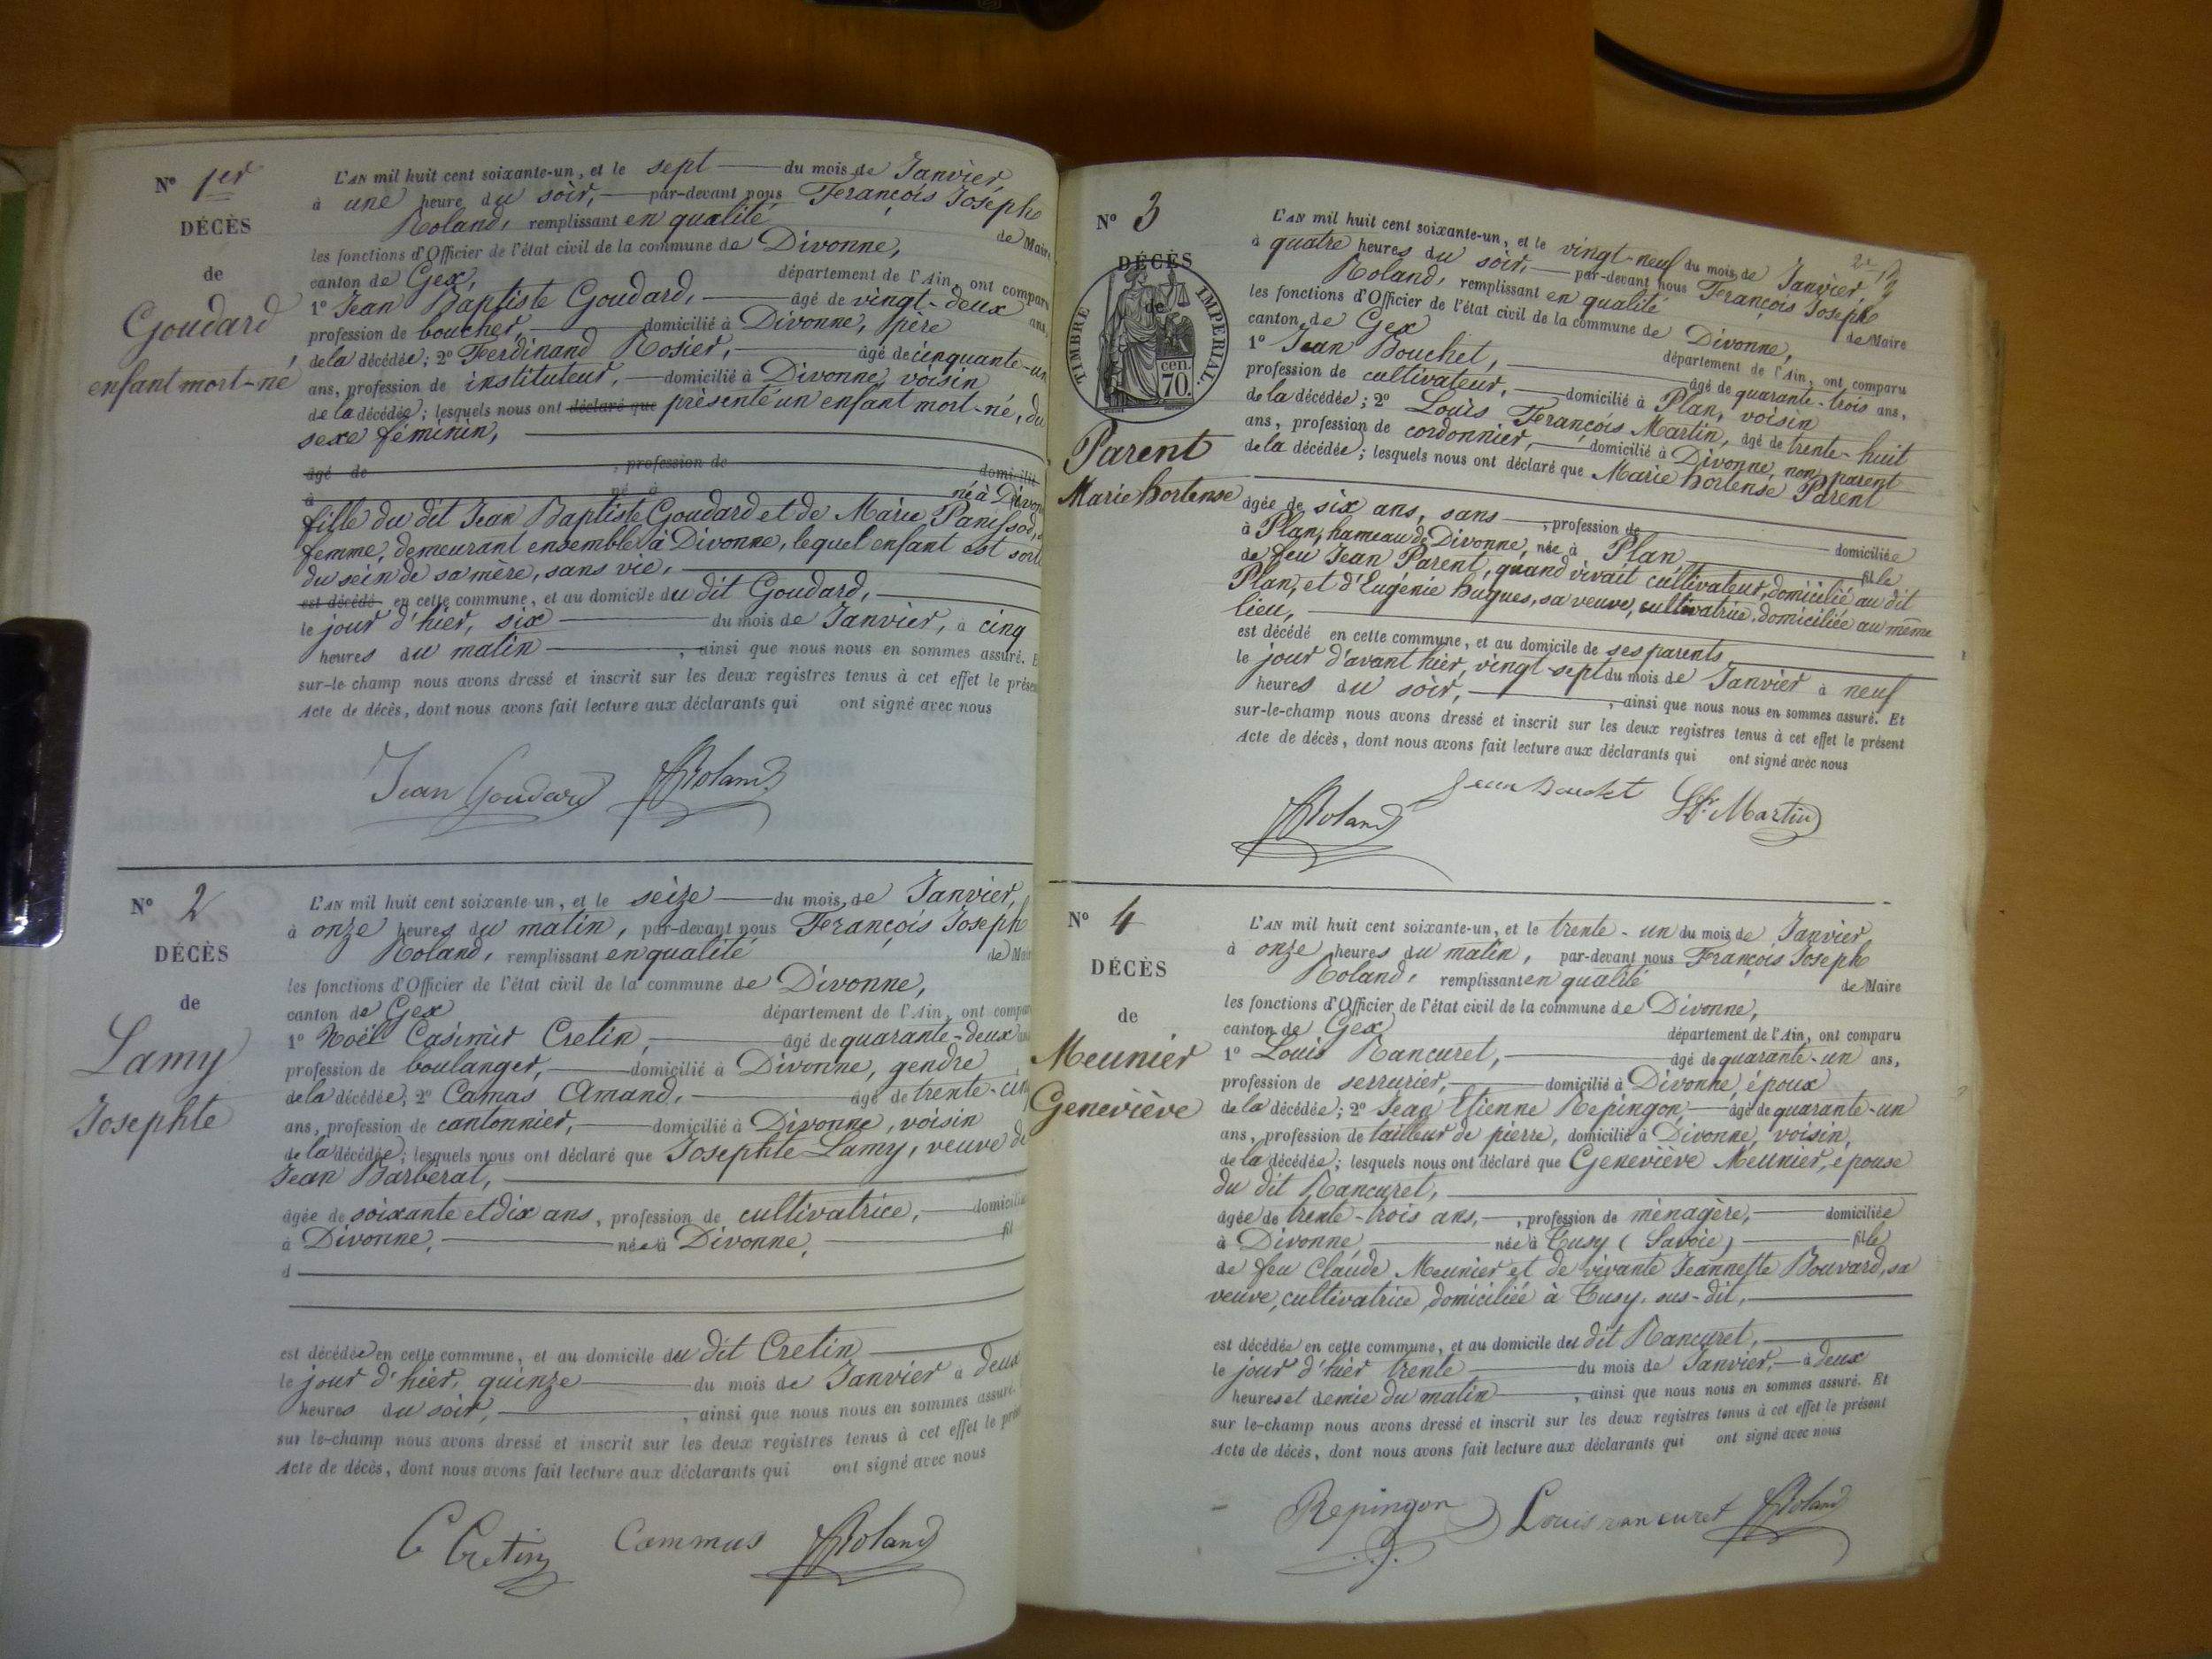 N° 1er
DÉCÈS
de
Goudard,
enfant mort-né
L'AN mil huit cent soixante-un, et le sept du mois de Janvier,
à une heure du soir, par-devant nous François Joseph
Roland, remplissant en qualité de Maire
les fonctions d'Officier de l'état civil de la commune de Divonne,
canton de Gex, département de l'Ain, ont comparu
1° Jean Baptiste Goudard, âgé de vingt-deux ans,
profession de boucher, domicilié à Divonne, père
de la décédée; 2° Ferdinand Rosier, âgé de cinquante-un
ans, profession de instituteur, domicilié à Divonne, voisin
de la décédée; lesquels nous ont déclaré que présenté un enfant mort-né, du
sexe féminin,
âgé de , profession de domicilié
à né à né à Divonne
fille du dit Jean Baptiste Goudard et de Marie Panissod,
femme, demeurant ensemble à Divonne, lequel enfant est sorti
du sein de sa mère, sans vie,
est décédé en cette commune, et au domicile du dit Goudard,
le jour d'hier, six du mois de Janvier, à cinq
heures du matin , ainsi que nous nous en sommes assuré. E
sur-le-champ nous avons dressé et inscrit sur les deux registres tenus à cet effet le présen
Acte de décès, dont nous avons fait lecture aux déclarants qui ont signé avec nous
Jean Goudard FJRoland
N° 2
DÉCÈS
de
Lamy
Josephte
L'AN mil huit cent soixante-un, et le seize du mois de Janvier,
à onze heures du matin, par-devant nous François Joseph
Roland, remplissant en qualité de Mair
les fonctions d'Officier de l'état civil de la commune de Divonne,
canton de Gex département de l'Ain, ont compar
1° Noël Casimir Cretin, âgé de quarante-deux ans
profession de boulanger, domicilié à Divonne, gendre
de la décédée; 2° Camas Amand, âgé de trente-cinq
ans, profession de cantonnier, domicilié à Divonne, voisin
de la décédée; lesquels nous ont déclaré que Josephte Lamy, veuve de
Jean Barberat,
âgée de soixante et dix ans, profession de cultivatrice, domicilié
à Divonne, née à Divonne, fil
d
est décédée en cette commune, et au domicile du dit Cretin
le jour d'hier, quinze du mois de Janvier à deux
heures du soir, , ainsi que nous nous en sommes assuré.
sur le-champ nous avons dressé et inscrit sur les deux registres tenus à cet effet le prés
Acte de décès, dont nous avons fait lecture aux déclarants qui ont signé avec nous
C Cretin Cammas FJRoland
N° 3
DÉCÈS
de
TIMBRE IMPÉRIAL.
70 cen.
Parent
Marie hortense
L'AN mil huit cent soixante-un, et le vingt-neuf du mois de Janvier,
à quatre heures du soir, par-devant nous François Joseph
Roland, remplissant en qualité de Maire
les fonctions d'Officier de l'état civil de la commune de Divonne,
canton de Gex département de l'Ain, ont comparu
1° Jean Bouchet, âgé de quarante-trois ans,
profession de cultivateur, domicilié à Plan, voisin
de la décédée; 2° Louis François Martin, âgé de trente-huit
ans, profession de cordonnier, domicilié à Divonne, non parent
de la décédée; lesquels nous ont déclaré que Marie hortense Parent
agée de six ans, sans , profession de domiciliée
à Plan, hameau de Divonne, née à Plan, fille
de feu Jean Parent, quand vivait cultivateur, domicilié au dit
Plan, et d'Eugénie hugues, sa veuve, cultivatrice, domiciliée au même
lieu,
est décédé en cette commune, et au domicile de ses parents
le jour d'avant hier, vingt-sept du mois de Janvier à neuf
heures du soir, , ainsi que nous nous en sommes assuré. Et
sur-le-champ nous avons dressé et inscrit sur les deux registres tenus à cet effet le présent
Acte de décès, dont nous avons fait lecture aux déclarants qui ont signé avec nous
FJRoland Jean Bouchet Martin
N° 4
DÉCÈS
de
Meunier
Geneviève
L'AN mil huit cent soixante-un, et le trente-un du mois de Janvier
à onze heures du matin, par-devant nous François Joseph
Roland, remplissant en qualité de Maire
les fonctions d'Officier de l'état civil de la commune de Divonne,
canton de Gex département de l'Ain, ont comparu
1° Louis Rancuret, âgé de quarante-un ans,
profession de serrurier, domicilié à Divonne, époux
de la décédée; 2° Jean Etienne Repingon, âgé de quarante-un
ans, profession de tailleur de pierre, domicilié à Divonne, voisin,
de la décédée; lesquels nous ont déclaré que Geneviève Meunier, épouse
du dit Rancuret,
agée de trente-trois ans, , profession de ménagère, domiciliée
à Divonne née à Cusy (Savoie) fille
de feu Claude Meunier et de vivante Jeannette Bouvard, sa
veuve, cultivatrice, domiciliée à Cusy, sus-dit,
est décédée en cette commune, et au domicile du dit Rancuret,
le jour d'hier trente du mois de Janvier, à deux
heures et demie du matin , ainsi que nous nous en sommes assuré. Et
sur le-champ nous avons dressé et inscrit sur les deux registres tenus à cet effet le présent
Acte de décès, dont nous avons fait lecture aux déclarants qui ont signé avec nous
Repingon Louis rancuret FJRoland